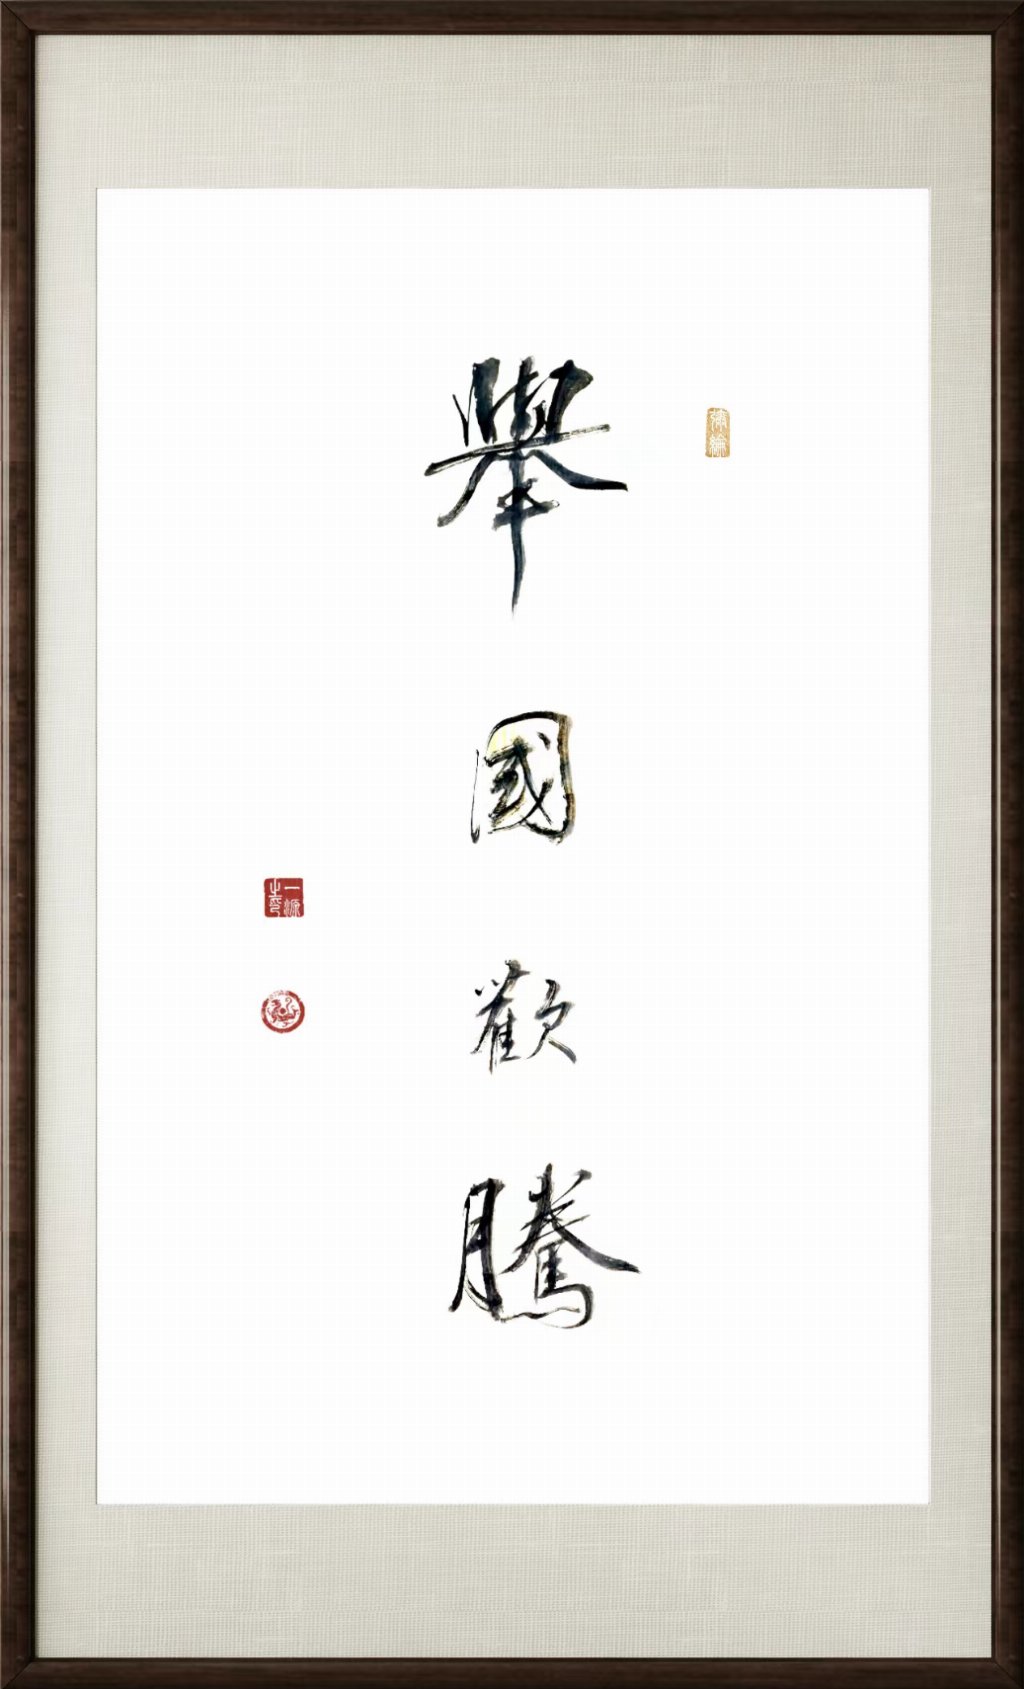 舉國歡騰